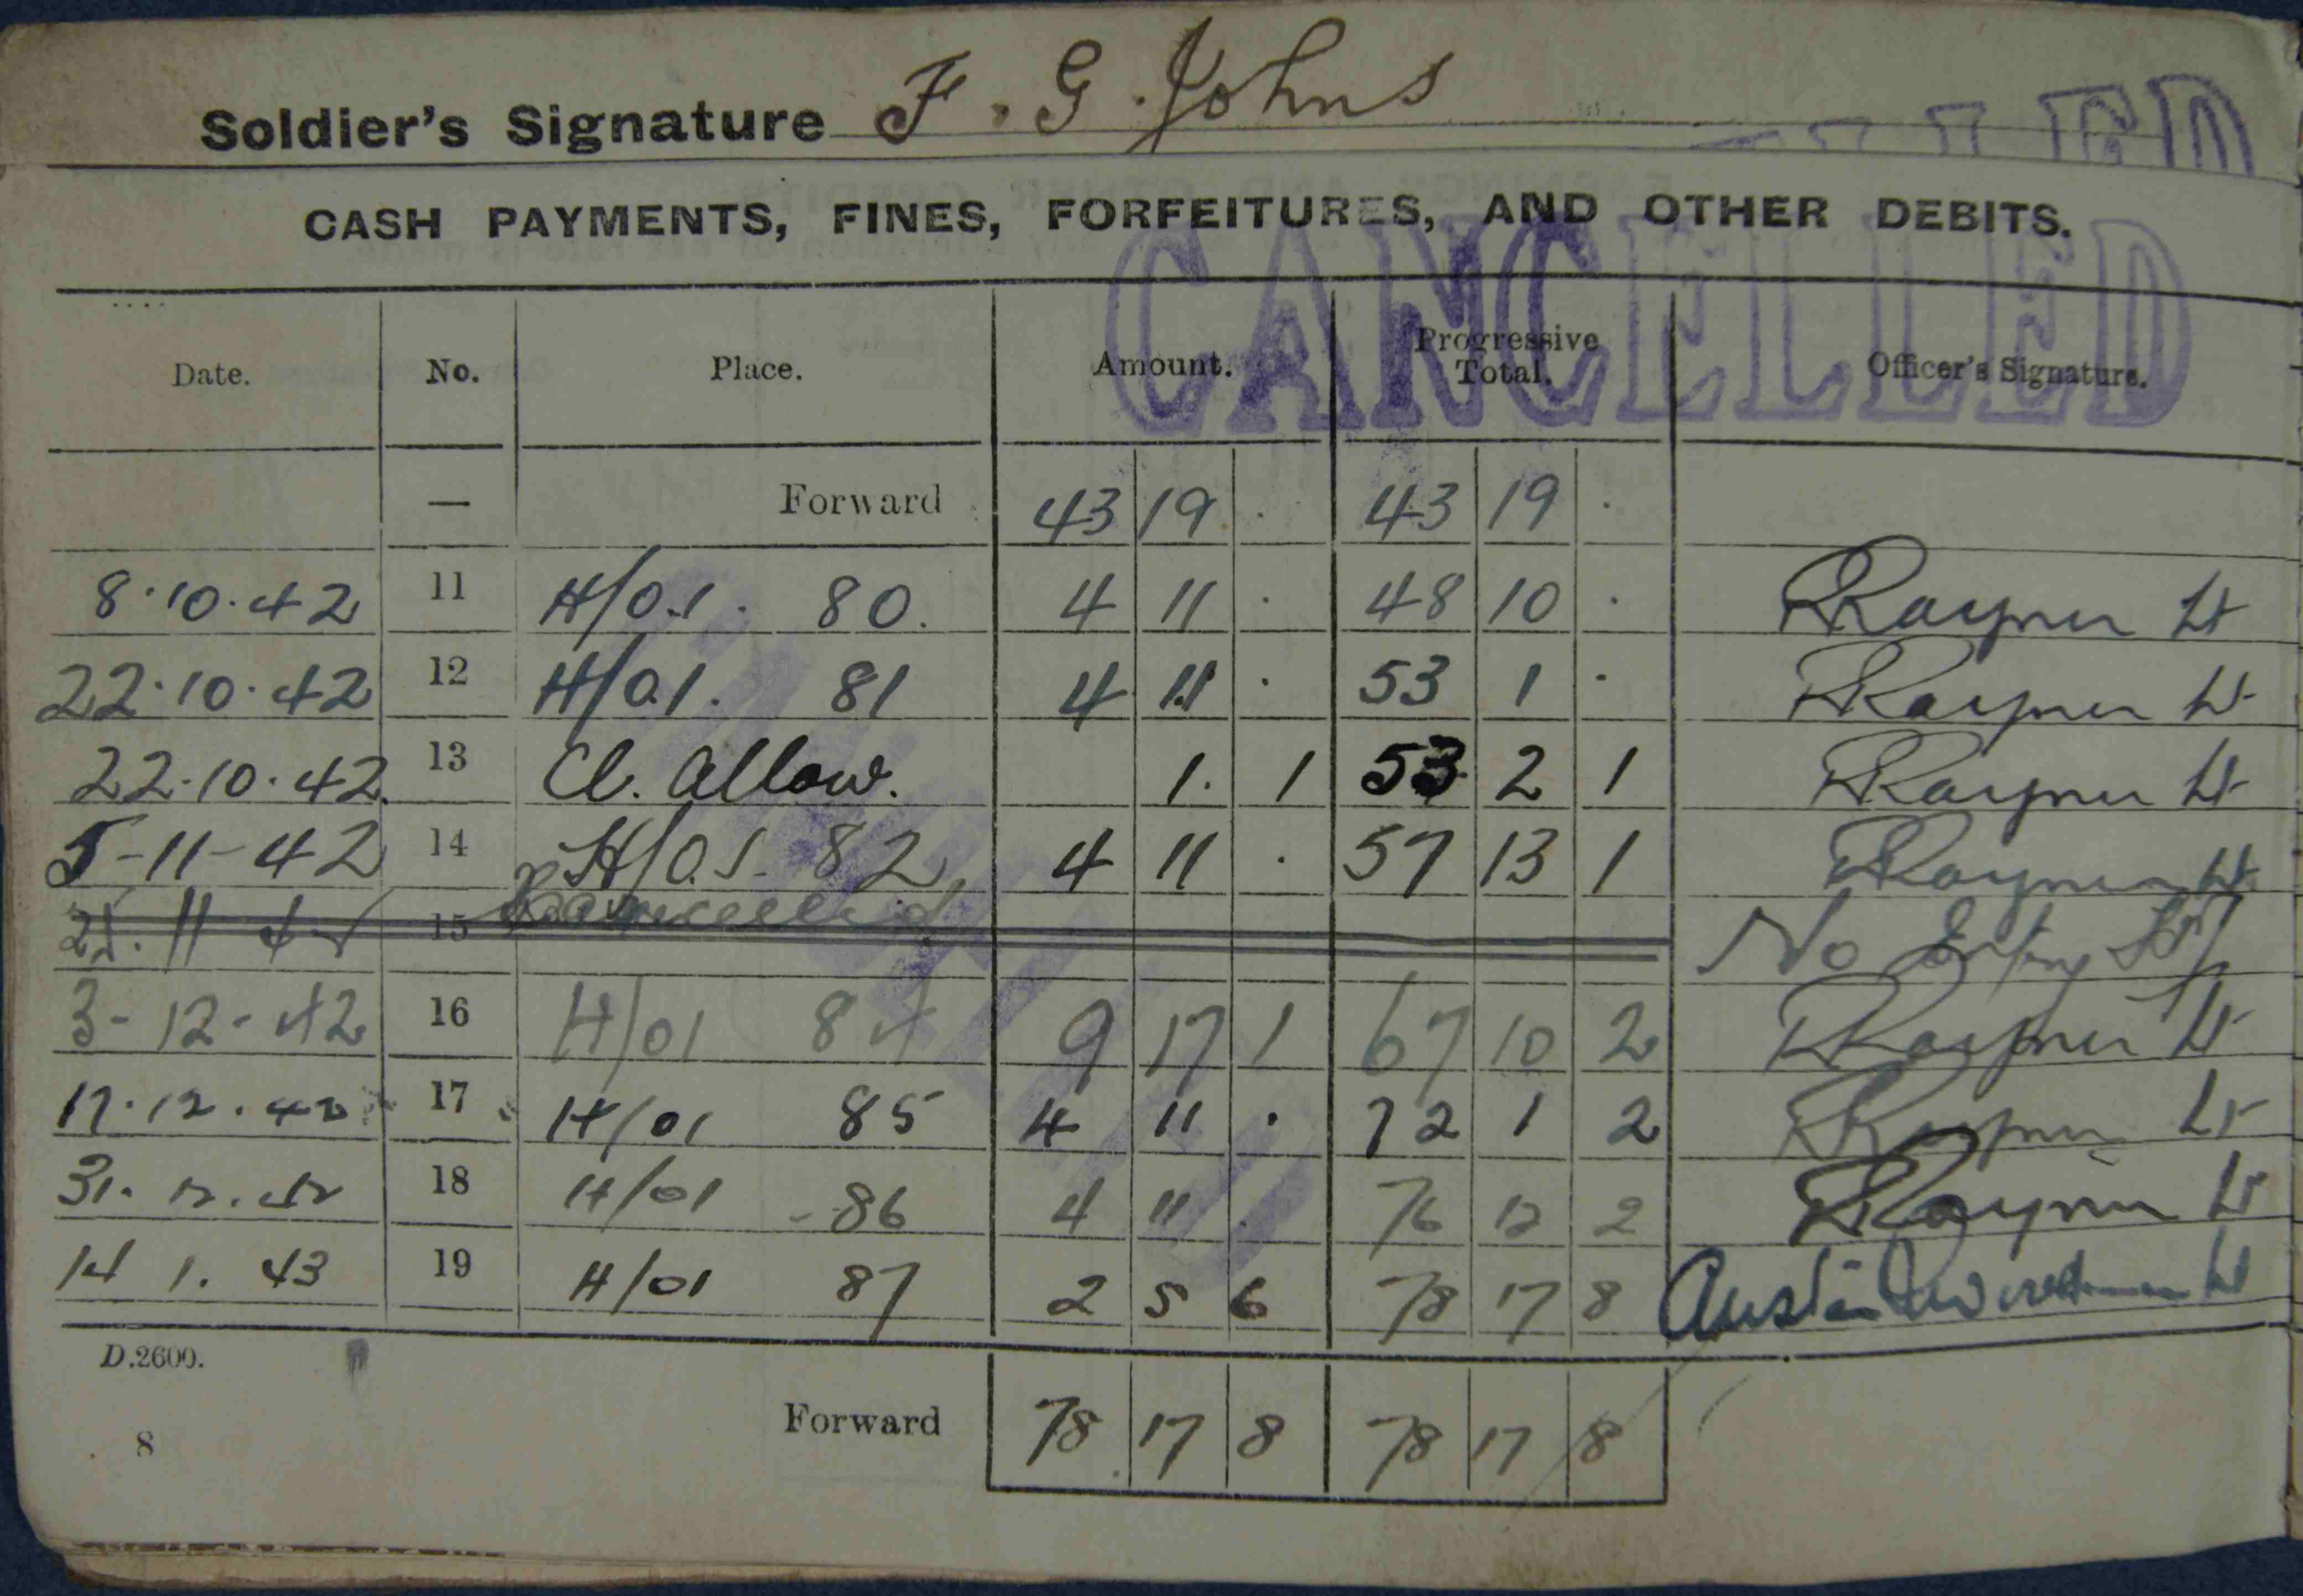 Soldier's Signature F. G. Johns
CANCELLED
CASH PAYMENTS, FINES, FORFEITURES, AND OTHER DEBITS.
Date. No. Place. Amount. Progressive Total. Officer's Signature.
— Forward 43 19 . 43 19 .
8.10.42 11 H/O.I. 80. 4 11 . 48 10 . Rayner Lt
22.10.42 12 H/O.I. 81 4 11 . 53 1 . Rayner Lt
22.10.42. 13 Cl. Allow. 1. 1 53 2 1 Rayner Lt
5-11-42 14 H/O.I. 82 4 11 . 57 13 1 Rayner Lt
15 Cancelled No Entry
3-12-42 16 H/O1 84 9 17 1 67 10 2 Rayner Lt
17.12.42 17 H/O1 85 4 11 . 72 1 2 Rayner Lt
31.12.42 18 H/O1 86 4 11 76 12 2 Rayner Lt
14 1. 43 19 H/O1 87 2 5 6 78 17 8 Austin Lt
D.2600.
Forward 78 17 8 78 17 8
8